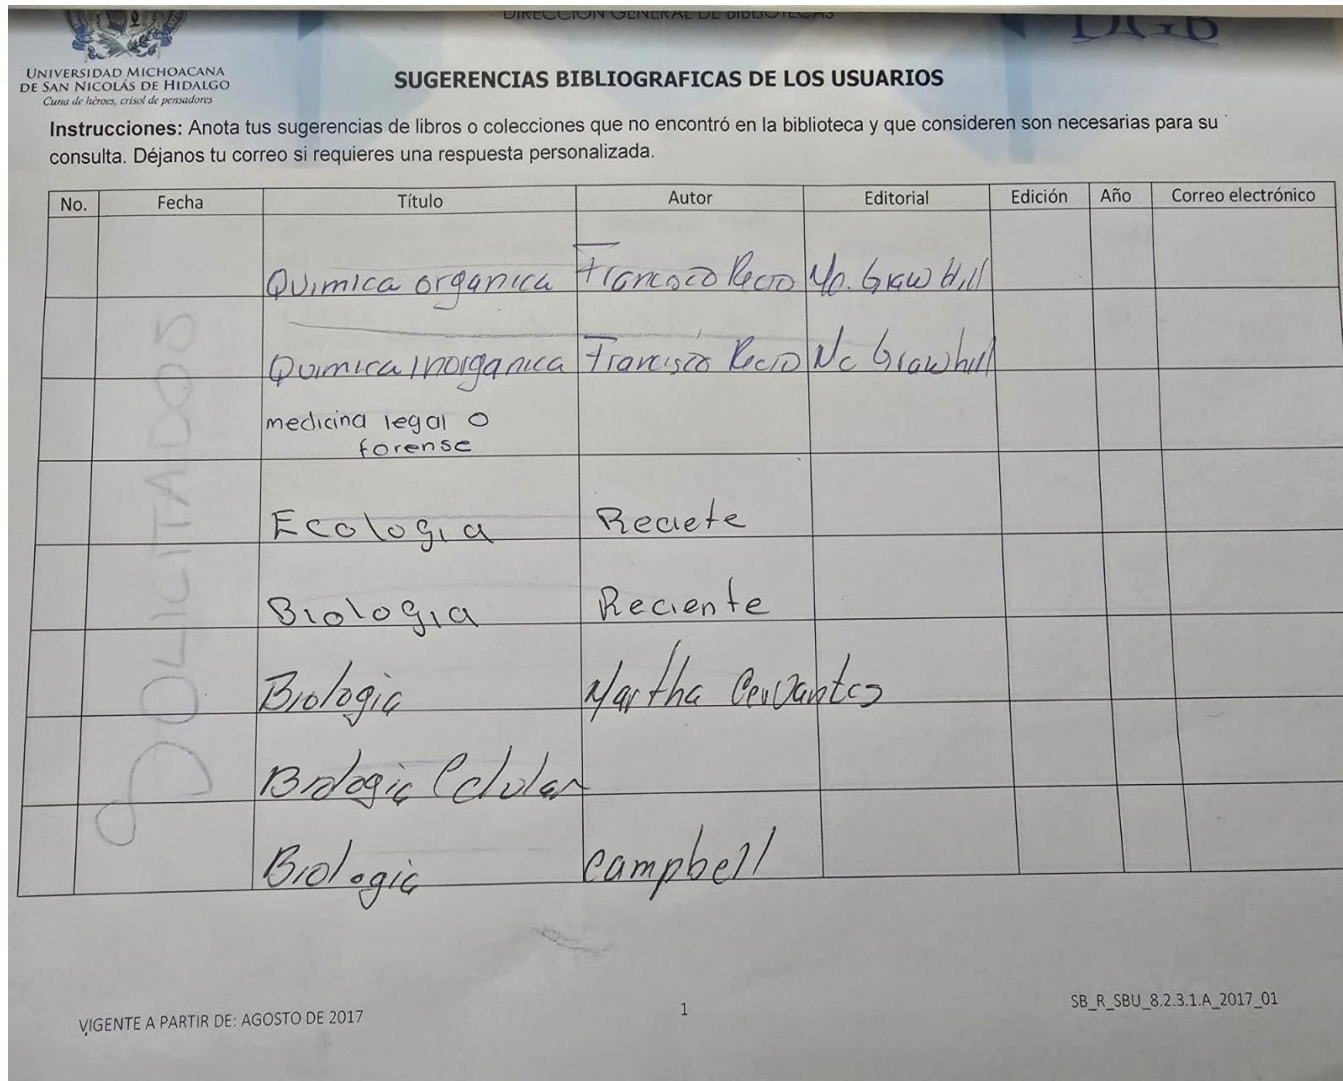 DIRECCIÓN GENERAL DE BIBLIOTECAS
DGB
UNIVERSIDAD MICHOACANA
DE SAN NICOLÁS DE HIDALGO
Cuna de héroes, crisol de pensadores
SUGERENCIAS BIBLIOGRAFICAS DE LOS USUARIOS
Instrucciones: Anota tus sugerencias de libros o colecciones que no encontró en la biblioteca y que consideren son necesarias para su
consulta. Déjanos tu correo si requieres una respuesta personalizada.
No. Fecha Título Autor Editorial Edición Año Correo electrónico
Quimica organica Francisco Recio Mc. Graw Hill
Quimica Inorganica Francisco Recio Mc Graw hill
medicina legal o
forense
Ecologia Reciete
Biologia Reciente
Biologia Martha Cervantes
Biologia Celular
Biologia campbell
SOLICITADOS
VIGENTE A PARTIR DE: AGOSTO DE 2017
1
SB_R_SBU_8.2.3.1.A_2017_01